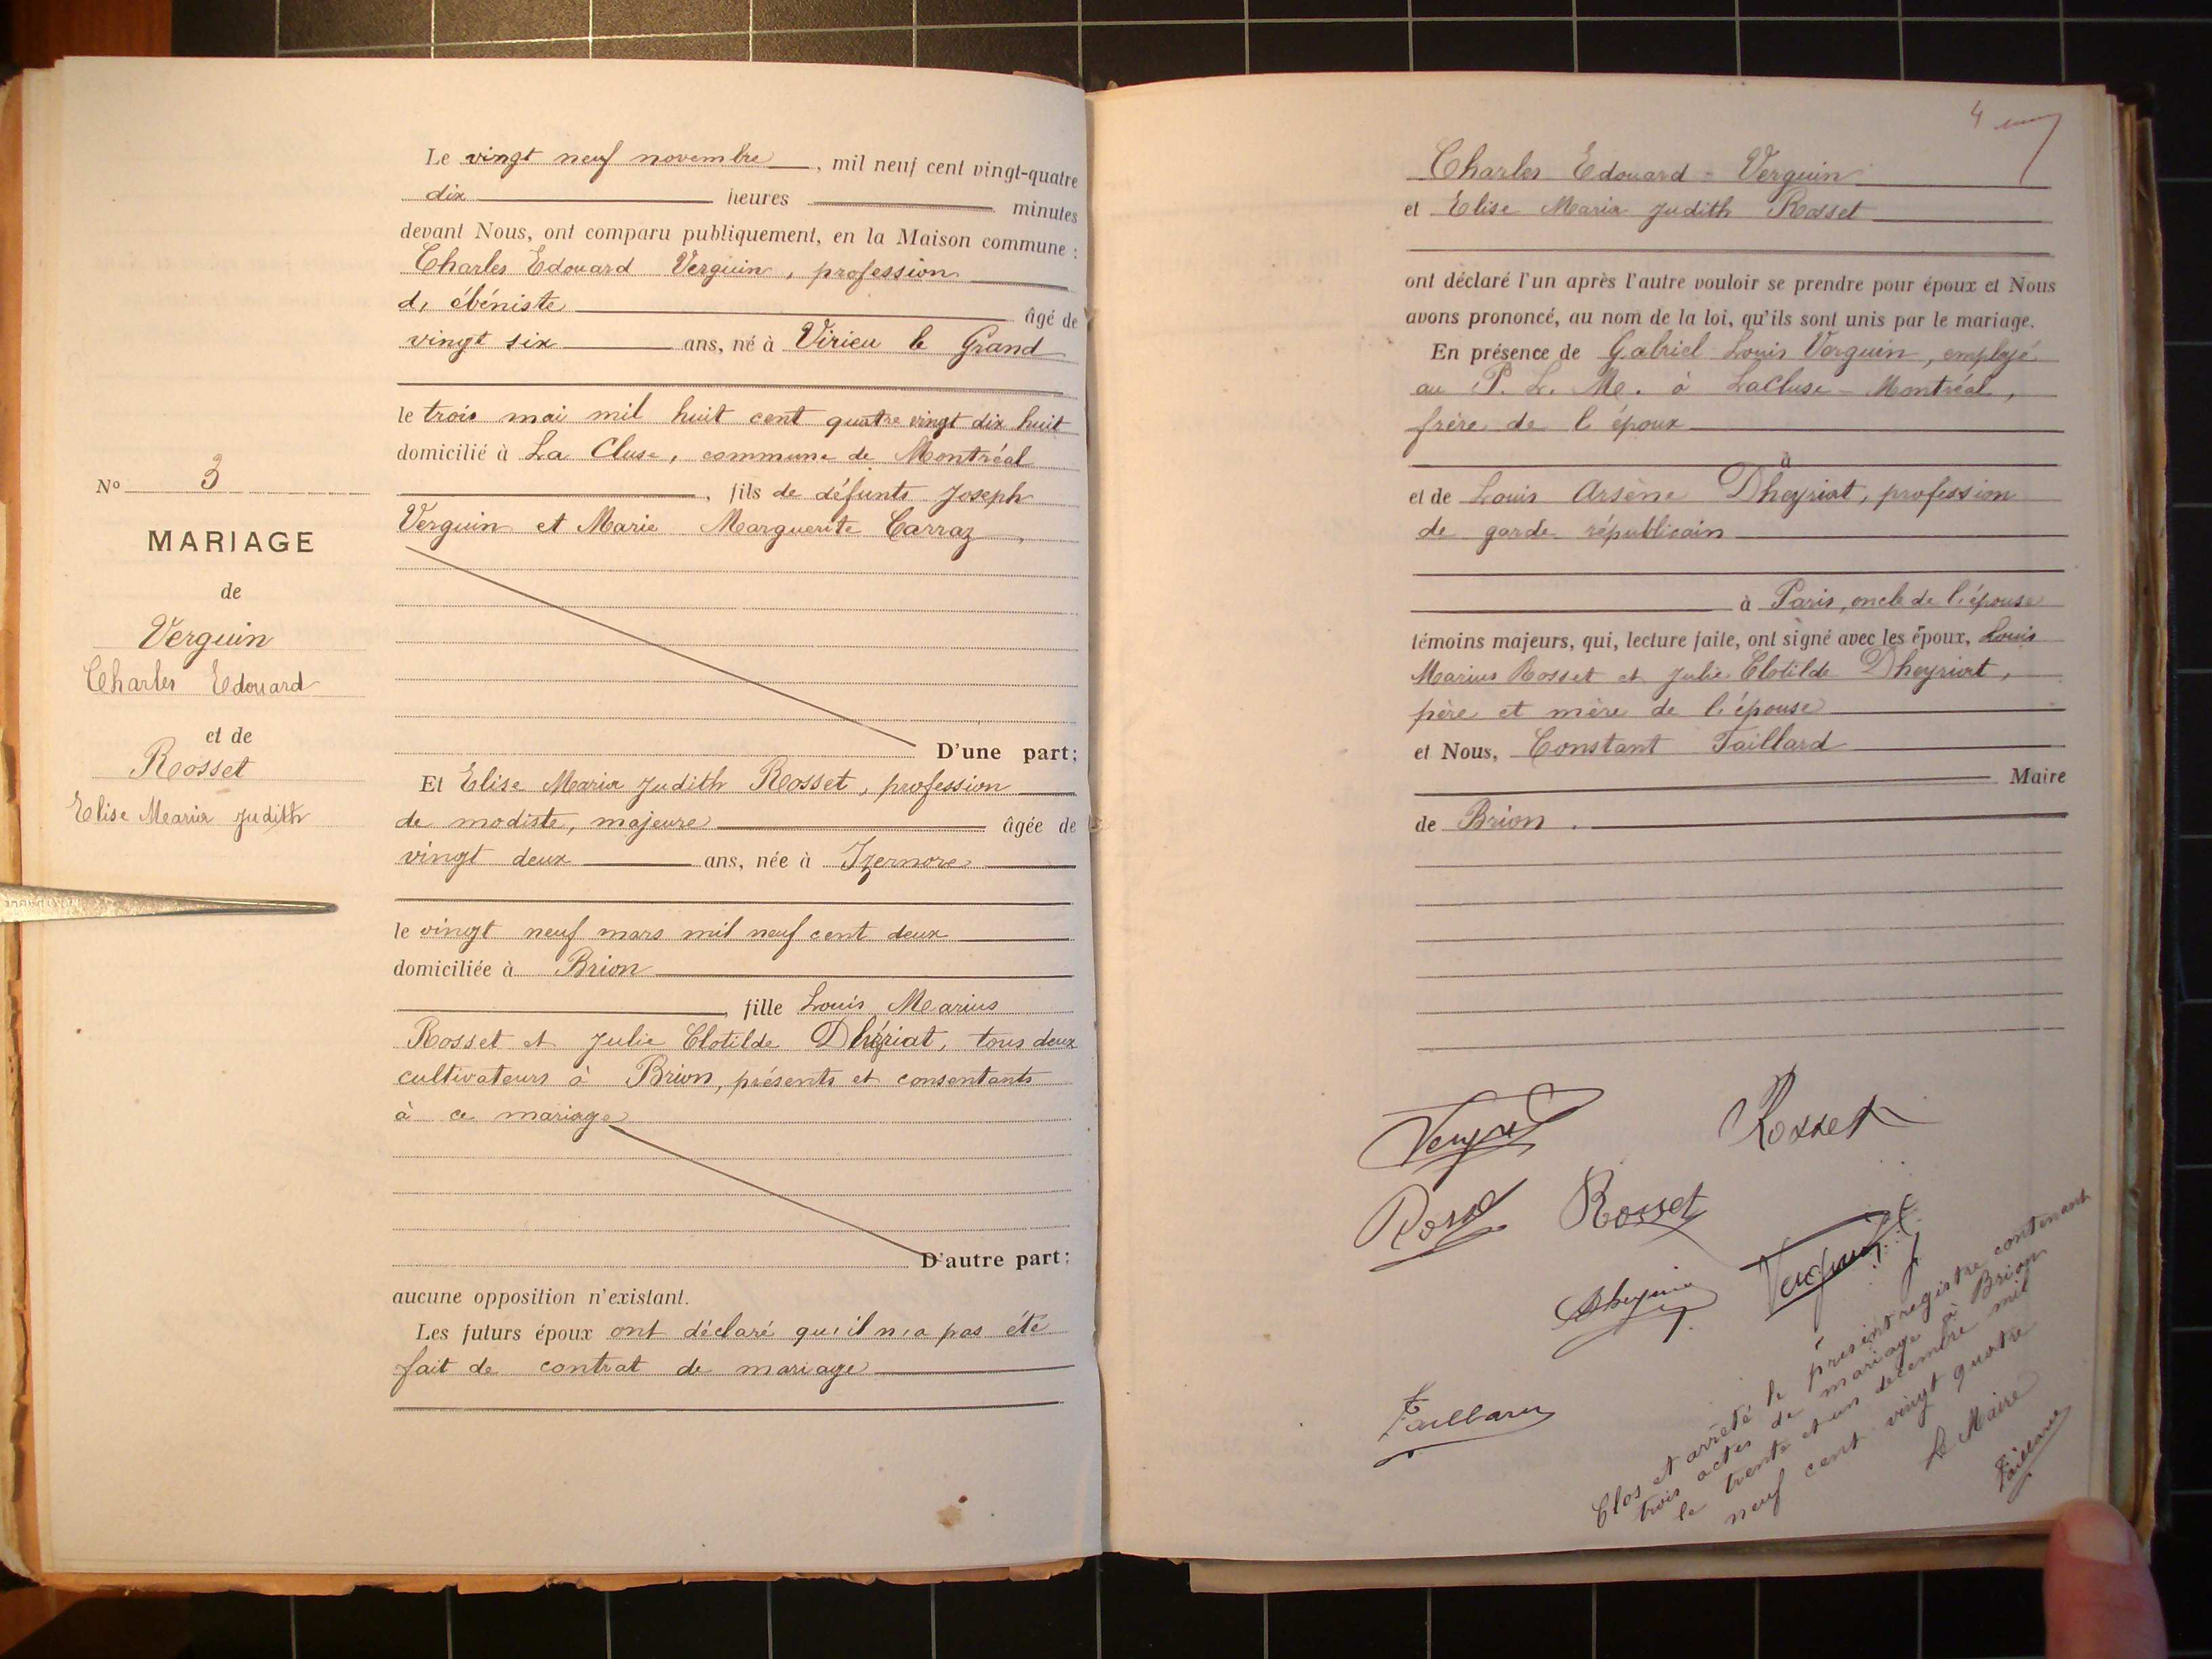 Le vingt neuf novembre, mil neuf cent vingt-quatre
dix heures minutes
devant Nous, ont comparu publiquement, en la Maison commune :
Charles Edouard Verguin, profession
d'ébéniste âgé de
vingt six ans, né à Virieu le Grand
le trois mai mil huit cent quatre vingt dix huit
domicilié à La Cluse, commune de Montréal
, fils de défunts Joseph
Verguin et Marie Marguerite Carraz,
D'une part;
Et Elise Maria Judith Rosset, profession
de modiste, majeure âgée de
vingt deux ans, née à Izernore
le vingt neuf mars mil neuf cent deux
domiciliée à Brion
, fille Louis Marius
Rosset et Julie Clotilde Dhériat, tous deux
cultivateurs à Brion, présents et consentants
à ce mariage
D'autre part;
aucune opposition n'existant.
Les futurs époux ont déclaré qu'il n'a pas été
fait de contrat de mariage
No 3
MARIAGE
de
Verguin
Charles Edouard
et de
Rosset
Elise Maria Judith
4
Charles Edouard Verguin
et Élise Maria Judith Rosset
ont déclaré l'un après l'autre vouloir se prendre pour époux et Nous
avons prononcé, au nom de la loi, qu'ils sont unis par le mariage.
En présence de Gabriel Louis Verguin, employé
au P. L. M. à LaCluse-Montréal,
frère de l'époux
à
et de Louis Arsène Dheyriat, profession
de garde républicain
à Paris, oncle de l'épouse
témoins majeurs, qui, lecture faite, ont signé avec les époux, Louis
Marius Rosset et Julie Clotilde Dheyriat,
père et mère de l'épouse
et Nous, Constant Taillard
Maire
de Brion.
Rosset
Rosset
Taillard
Clos et arrêté le présent registre contenant
trois actes de mariage à Brion
le trente et un décembre mil
neuf cent vingt quatre
Le Maire
Taillard